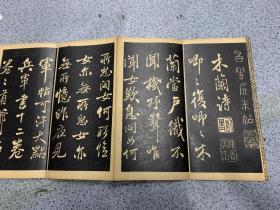 木蘭詩
唧〻復唧〻木
蘭當戶織不
聞機杼聲唯
聞女歎息問女何
所思問女何所憶
女亦無所思女亦
無所憶昨夜見
軍帖可汗大點
兵軍書十二卷
卷〻有爺